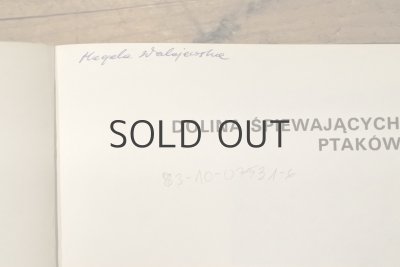 Magda Walajewska
DOLINA ŚPIEWAJĄCYCH
PTAKÓW
SOLD OUT
83-10-07931-6